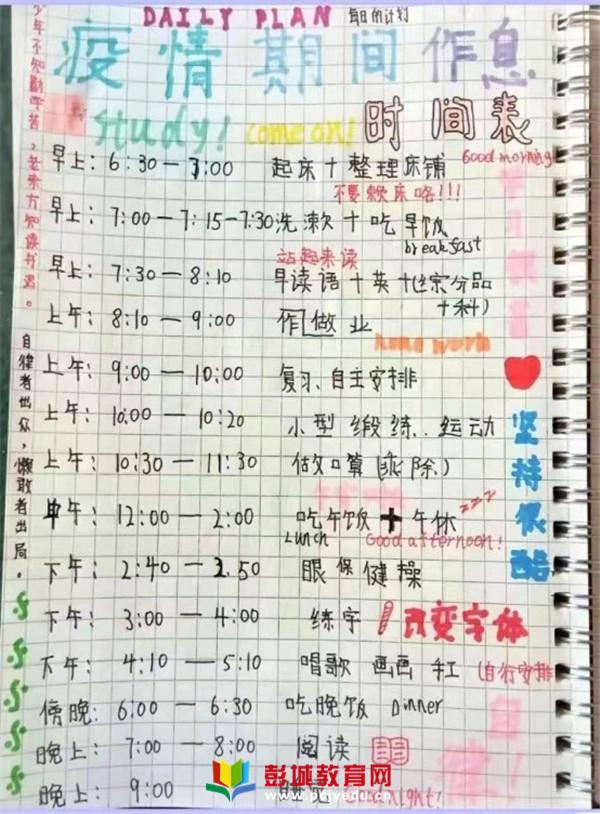 DAILY PLAN 每日的计划
疫情期间作息
Study! Come on! 时间表
早上：6：30—7：00 起床+整理床铺 Good morning!
不要赖床咯!!!
早上：7:00—7:15—7:30 洗漱+吃早饭
breakfast
站起来读
早上：7:30—8:10 早读语+英+(综分品
+科)
上午：8:10—9:00 作做业
home work
上午：9:00—10:00 复习、自主安排
上午：10:00—10:20 小型缎练..运动
上午：10:30—11:30 做口算(乘除)
中午：12:00—2:00 吃午饭+午休 zzz
Lunch Good afternoon!
下午：2:40—2.50 眼保健操
下午：3:00—4:00 练字 改变字体
下午：4:10—5:10 唱歌 画画 手工 (自行安排
傍晚：6:00—6:30 吃晚饭 Dinner
晚上：7:00—8:00 阅读
晚上：9:00 睡觉 Goodnight!
少年不知勤学苦，老来方知读书迟。
自律者出众，懒散者出局。
坚持很酷
彭城教育网
www.pcjyedu.cn